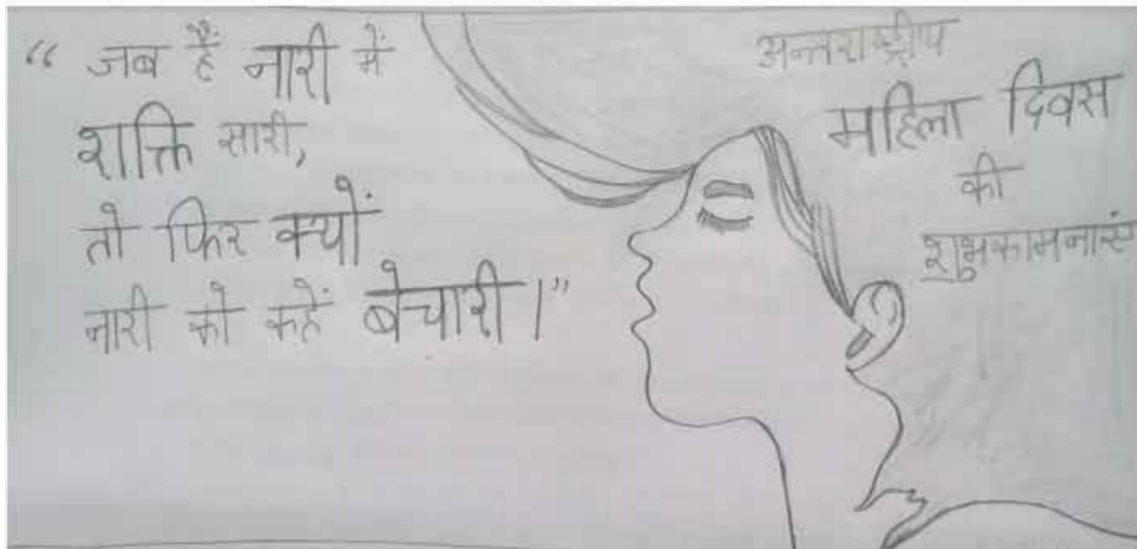 “ जब हैं नारी में
शक्ति सारी,
तो फिर क्यों
नारी को कहें बेचारी ।”
अन्तराष्ट्रीय
महिला दिवस
की
शुभकामनाएं